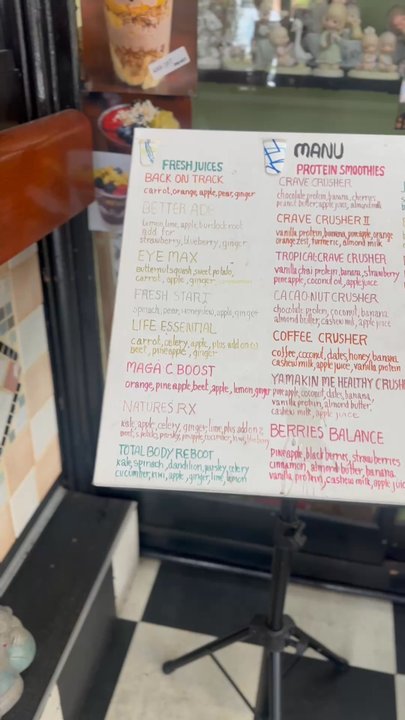 MANU
FRESH JUICES
BACK ON TRACK
carrot, orange, apple, pear, ginger
BETTER
lemon, lime, apple, burdock root
add for
strawberry, blueberry, ginger
EYE MAX
butternut squash, sweet potato,
carrot, apple, ginger
FRESH START
spinach, pear, apple, ginger
LIFE ESSENTIAL
carrot, celery, apple, plus add on
beet, pineapple, ginger
MAGA C. BOOST
orange, pineapple, beet, apple, lemon, ginger
NATURES RX
kale, apple, celery, ginger, lime, plus add on 2
beet, parsley, pineapple, cucumber, kiwi, blueberry
TOTAL BODY REBOOT
kale, spinach, dandilion, parsley, celery
cucumber, kiwi, apple, ginger, lime, lemon
PROTEIN SMOOTHIES
CRAVE CRUSHER
chocolate protein, banana, cherrys
peanut butter, apple juice, almond milk
CRAVE CRUSHER II
vanilla protein, banana, pineapple, orange
orange zest, turmeric, almond milk
TROPICAL CRAVE CRUSHER
vanilla chai protein, banana, strawberry
pineapple, coconut oil, apple juice
CACAO NUT CRUSHER
chocolate protein, coconut, banana
almond butter, cashew milk, apple juice
COFFEE CRUSHER
coffee, coconut, dates, honey, banana
cashew milk, apple juice, vanilla protein
YAMAKIN ME HEALTHY CRUSH
pineapple, coconut, dates, banana,
vanilla protein, almond butter,
cashew milk, apple juice
BERRIES BALANCE
pineapple, blackberries, strawberries
cinnamon, almond butter, banana,
vanilla protein, cashew milk, apple juice